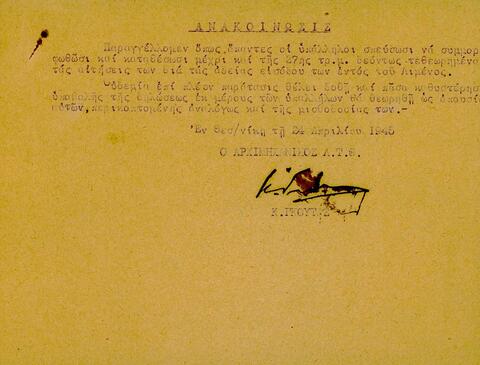 ΑΝΑΚΟΙΝΩΣΙΣ
Παραγγέλλομεν ὅπως ἅπαντες οἱ ὑπάλληλοι σπεύσωσι νά συμμορ
φωθῶσι καί καταθέσωσι μέχρι καί τῆς 27ης τρ.μ. δεόντως τεθεωρημένα
τάς αἰτήσεις των διά τάς ἀδείας εἰσόδου των ἐντός τοῦ Λιμένος.
Οὐδεμία ἐπί πλέον παράτασις θέλει δοθῆ καί πᾶσα καθυστέρησ
ὑποβολῆς τῆς δηλώσεως ἐκ μέρους τῶν ὑπαλλήλων θά θεωρηθῆ ὡς ἀπουσία
αὐτῶν, περικοπτομένης ἀναλόγως καί τῆς μισθοδοσίας των.-
Ἐν Θεσ/νίκῃ τῇ 24 Ἀπριλίου 1945
Ο ΑΡΧΙΜΗΧΑΝΙΚΟΣ Λ.Τ.Θ.